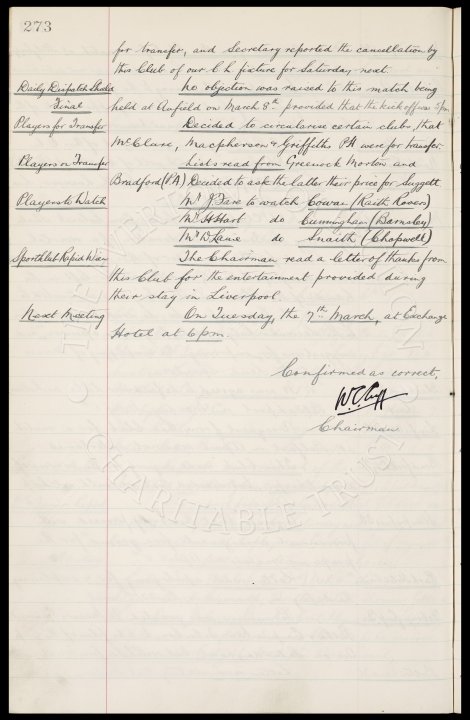 273
for transfer, and Secretary reported the cancellation by
this Club of our C.L. fixture for Saturday next.
Daily Dispatch Shield Final
No objection was raised to this match being
held at Anfield on March 8th provided that the kick off was 5pm
Players for Transfer
Decided to circularise certain clubs, that
McClure, Macpherson & Griffiths P.H. were for transfer.
Players on Transfer
Lists read from Greenock Morton, and
Bradford (P.A.) Decided to ask the latter their price for Suggett
Players to Watch
Mr J. Fare to watch Cowan (Raith Rovers)
Mr H Hart do Cunningham (Barnsley)
Mr D Lane do Snaith (Chopwell)
Sportklub Rapid Wien
The Chairman read a letter of thanks from
this Club for the entertainment provided during
their stay in Liverpool.
Next Meeting
On Tuesday, the 7th March, at Exchange
Hotel at 6 pm.
Confirmed as correct,
W.C. Cuff
Chairman
THE EVERTON
CHARITABLE TRUST